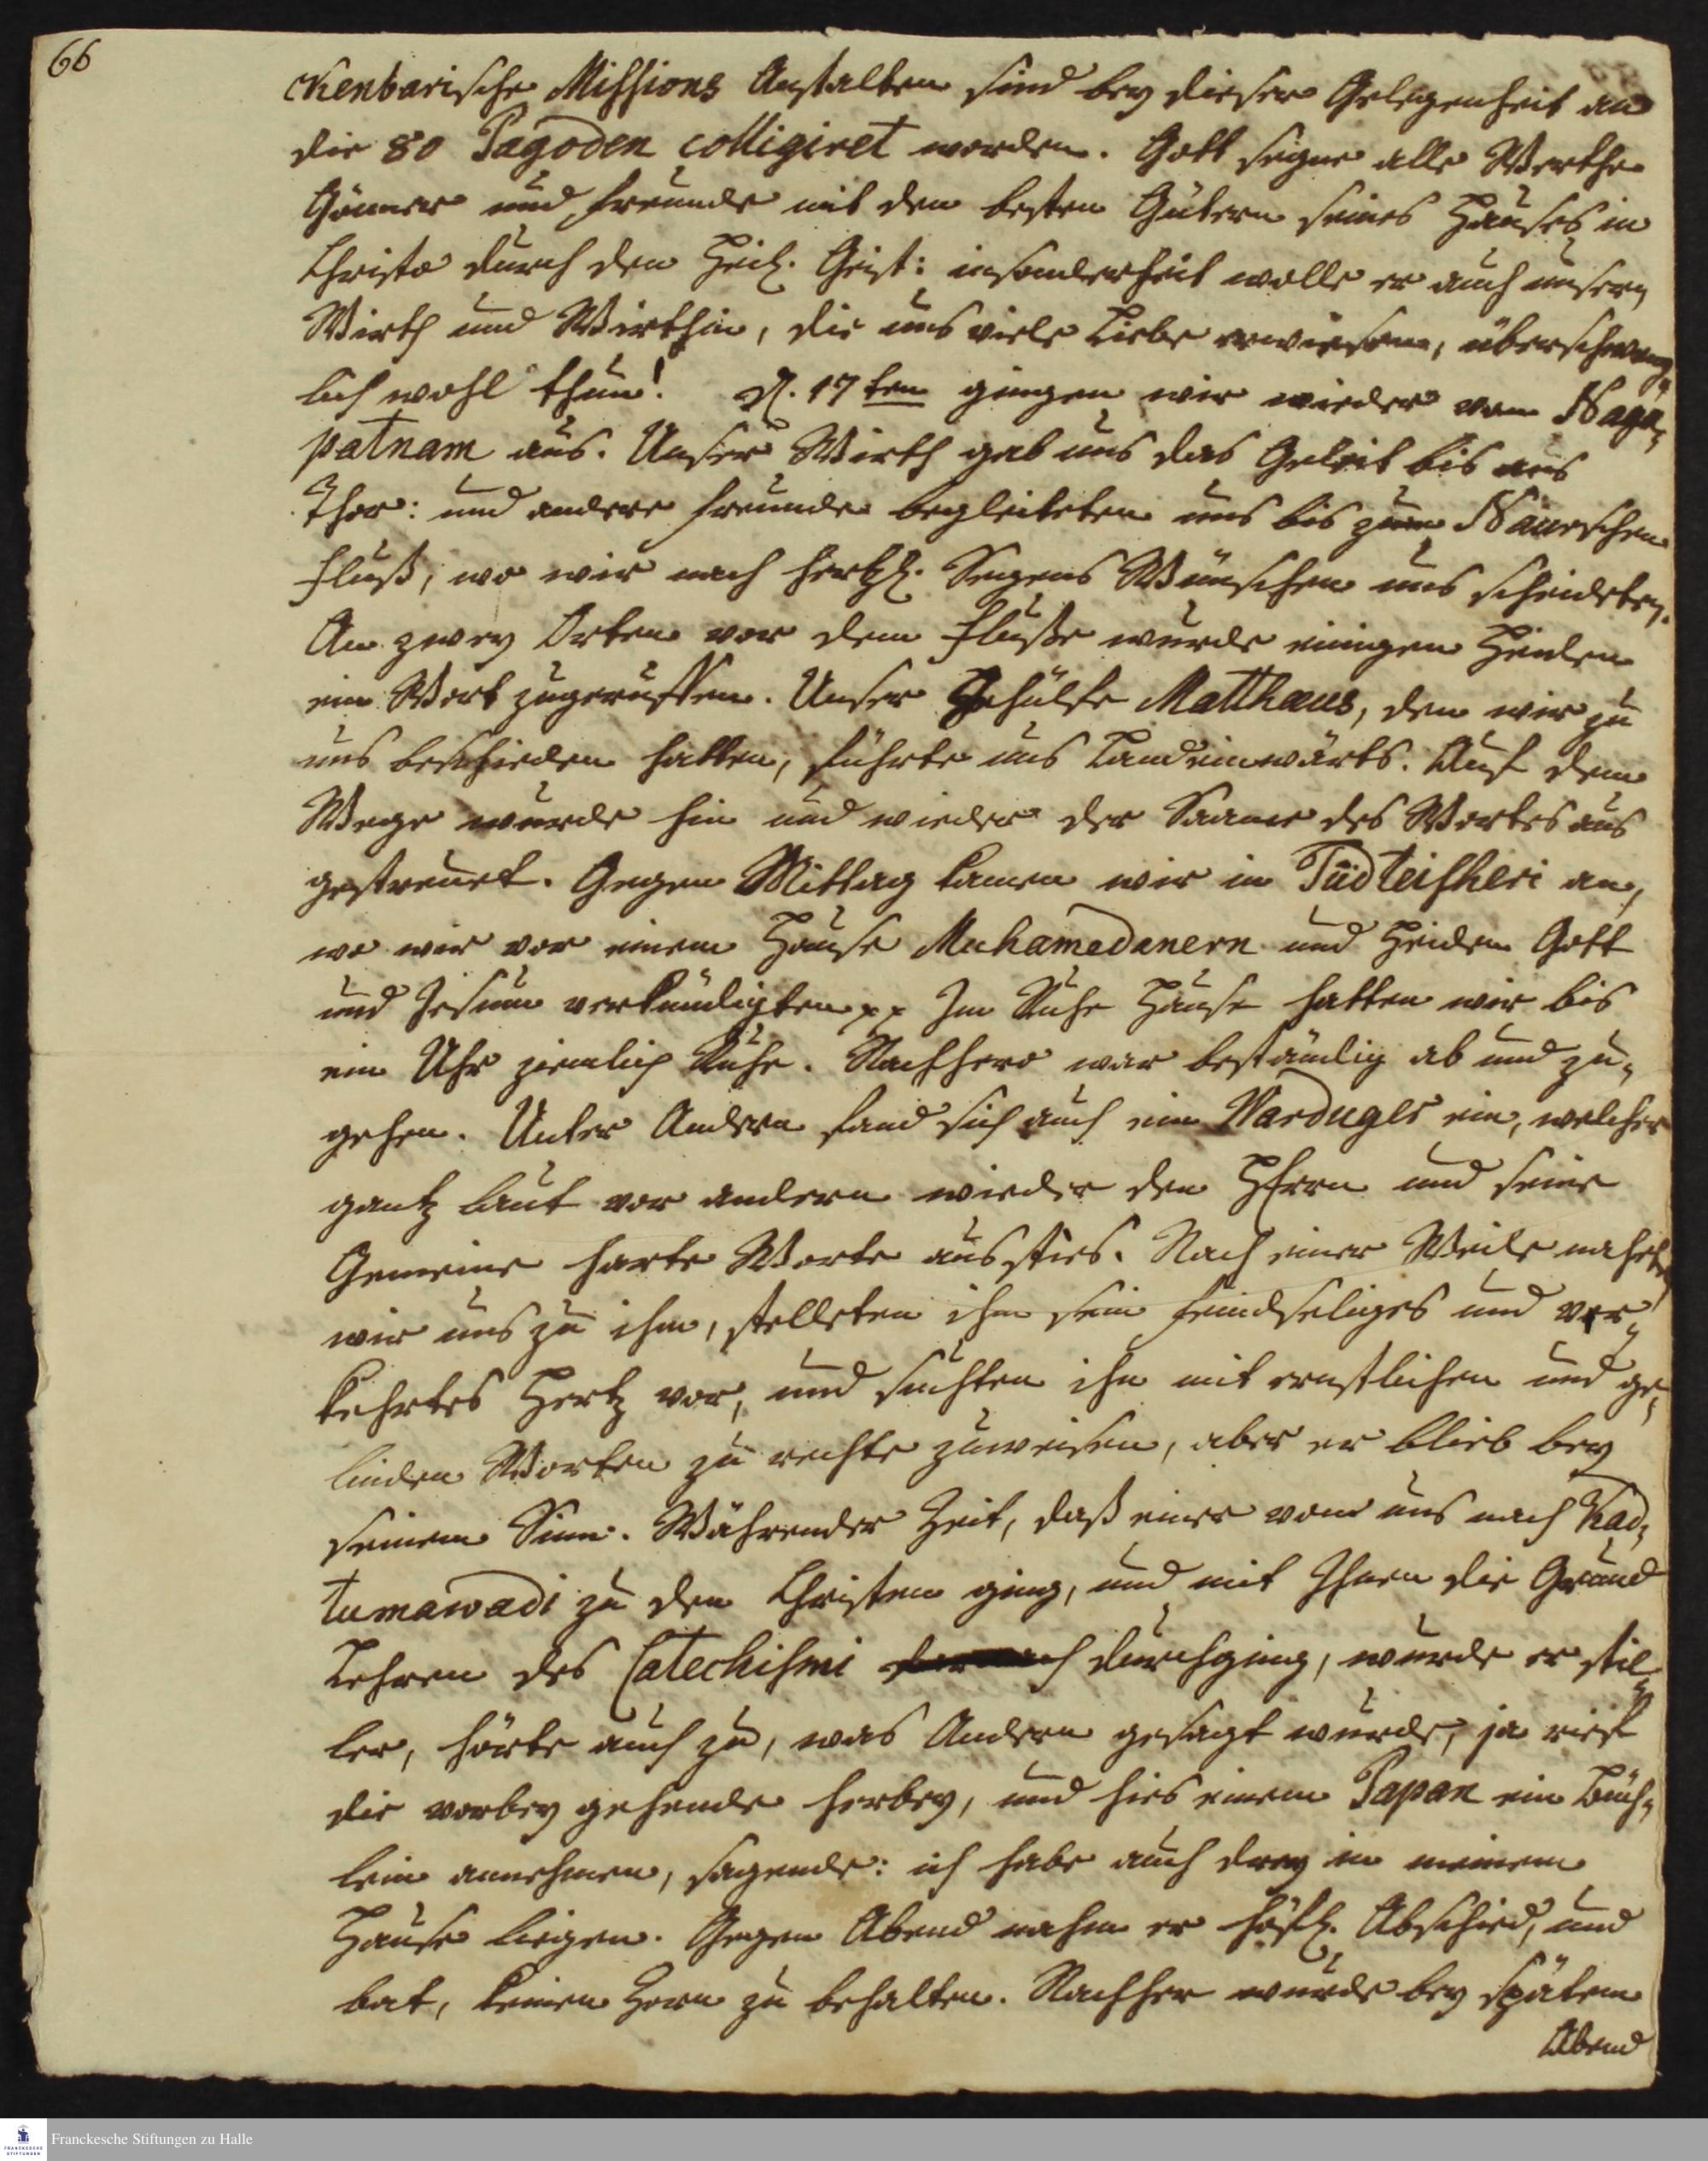 66
ckenbarische Missions Anstalten sind bey dieser Gelegenheit an
die 80 Pagoden colligiret worden. Gott segne alle Werthe
Gönner und Freunde mit den besten Gütern seines Hauses in
Christo durch den Heil. Geist: insonderheit wolle er auch unsern
Wirth und Wirthin, die uns viele Liebe erwiesen, überschweng,
lich wohl thun! D. 17ten gingen wir wieder von Naga,
patnam aus. Unser Wirth gab uns das Geleit bis ans
Thor: und andere Freunde begleiteten uns bis zum Naurschen
Fluß, wo wir nach hertzl. Segens Wünschen uns scheideten.
An zwey Orten vor dem Fluße wurde einigen Heiden
ein Wort zugeruffen. Unser Gehülfe Matthaeus, den wir zu
uns beschieden hatten, führte uns Landeinwärts. Auf dem
Wege wurde hin und wieder der Saame des Wortes aus
gestreuet. Gegen Mittag kamen wir in Tüdteischeri an,
wo wir vor einem Hause Muhamedanern und Heiden Gott
und Jesum verkündigten pp Im Ruhe Hause hatten wir bis
ein Uhr ziemlich Ruhe. Nachhero war beständig ab und zu,
gehen. Unter Andern fand sich auch ein Warduger ein, welcher
gantz laut vor andern wieder den HErrn und seine
Gemeine harte Worte aussties. Nach einer Weile naheten
wir uns zu ihm, stelleten ihm sein feindseliges und ver,
kehrtes Hertz vor, und suchten ihn mit ernstlichen und ge,
linden Worten zu rechte zuweisen, aber er blieb bey
seinem Sinn. Während der Zeit, daß einer von uns nach Kad,
tumawadi zu den Christen ging, und mit Ihnen die Grund
Lehren des Catechismi durchging, wurde er stil,
ler, hörte auch zu, was Andern gesagt wurde, ja rief
die vorbey gehende herbey, und hies einem Papan ein Büch,
lein annehmen, sagende: ich habe auch drey in meinem
Hause liegen. Gegen Abend nahm er höfl. Abschied, und
bat, keinen Zorn zu behalten. Nachher wurde bey spätem
Abend
Franckesche Stiftungen zu Halle